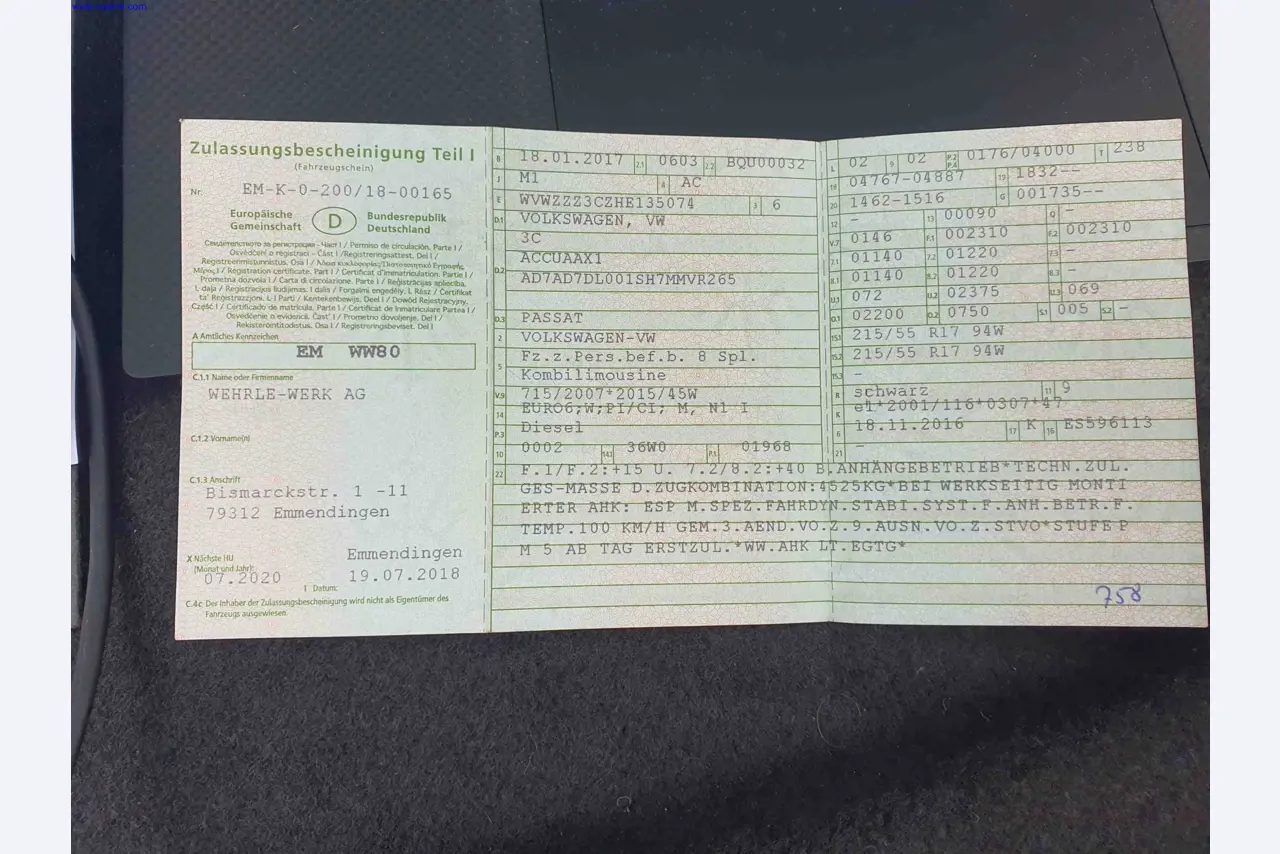 Zulassungsbescheinigung Teil I
(Fahrzeugschein)
Nr. EM-K-0-200/18-00165
Europäische Gemeinschaft D Bundesrepublik Deutschland
Свидетелство за регистрация - Част I / Permiso de circulación. Parte I /
Osvědčení o registraci - Část I / Registreringsattest. Del I /
Registreerimistunnistus. Osa I / Άδεια κυκλοφορίας/Πιστοποιητικό Εγγραφής.
Μέρος I / Registration certificate. Part I / Certificat d'immatriculation. Partie I /
Prometna dozvola I / Carta di circolazione. Parte I / Reģistrācijas apliecība.
I. daļa / Registracijos liudijimas. I dalis / Forgalmi engedély. I. Rész / Ċertifikat
ta' Reġistrazzjoni. L-I Parti / Kentekenbewijs. Deel I / Dowód Rejestracyjny.
Część I / Certificado de matrícula. Parte I / Certificat de înmatriculare Partea I /
Osvedčenie o evidencii. Časť I / Prometno dovoljenje. Del I /
Rekisteröintitodistus. Osa I / Registreringsbeviset. Del I
A Amtliches Kennzeichen
EM WW80
C.1.1 Name oder Firmenname
WEHRLE-WERK AG
C.1.2 Vorname(n)
C.1.3 Anschrift
Bismarckstr. 1 -11
79312 Emmendingen
X Nächste HU
(Monat und Jahr):
07.2020
Emmendingen
19.07.2018
I Datum:
C.4c Der Inhaber der Zulassungsbescheinigung wird nicht als Eigentümer des
Fahrzeugs ausgewiesen.
B 18.01.2017 2.1 0603 2.2 BQU00032
J M1 4 AC
E WVWZZZ3CZHE135074 3 6
D.1 VOLKSWAGEN, VW
3C
D.2 ACCUAAX1
AD7AD7DL001SH7MMVR265
D.3 PASSAT
2 VOLKSWAGEN-VW
5 Fz.z.Pers.bef.b. 8 Spl.
Kombilimousine
V.9 715/2007*2015/45W
14 EURO6;W;PI/CI; M, N1 I
P.3 Diesel
10 0002 14.1 36W0 P.1 01968
L 02 9 02 P.2 P.4 0176/04000 T 238
18 04767-04887 19 1832--
20 1462-1516 G 001735--
12 - 13 00090 Q -
V.7 0146 F.1 002310 F.2 002310
7.1 01140 7.2 01220 7.3 -
8.1 01140 8.2 01220 8.3 -
U.1 072 U.2 02375 U.3 069
O.1 02200 O.2 0750 S.1 005 S.2 -
15.1 215/55 R17 94W
15.2 215/55 R17 94W
15.3 -
R schwarz 11 9
K e1*2001/116*0307*47
6 18.11.2016 17 K 16 ES596113
21 -
22 F.1/F.2:+15 U. 7.2/8.2:+40 B.ANHÄNGEBETRIEB*TECHN.ZUL.
GES-MASSE D.ZUGKOMBINATION:4525KG*BEI WERKSEITIG MONTI
ERTER AHK: ESP M.SPEZ.FAHRDYN.STABI.SYST.F.ANH.BETR.F.
TEMP.100 KM/H GEM.3.AEND.VO.Z.9.AUSN.VO.Z.STVO*STUFE P
M 5 AB TAG ERSTZUL.*WW.AHK LT.EGTG*
758